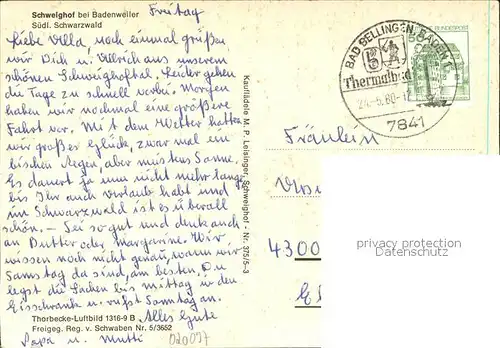 Schweighof bei Badenweiler
Südl. Schwarzwald
Freitag
Liebe Villa, noch einmal grüßen
wir Dich u. Ullrich aus unserem
schönen Schweighoftal. Leider gehen
die Tage zu schnell vorbei. Morgen
haben wir nochmal eine größere
Fahrt vor. Mit dem Wetter hatten
wir großes Glück, zwar mal ein
bischen Regen, aber meistens Sonne.
Es dauert ja nun nicht mehr lange,
bis Ihr auch Urlaub habt und
im Schwarzwald ist es überall
schön. – Sei so gut und denk auch
an Butter oder Margerine. Wir
wissen noch nicht genau, wann wir
Samstag da sind, am besten, Du
legst die Sachen bis mittag in den
Eisschrank u. rufst Sonntag an.
Alles Gute
Papa u. Mutti
Thorbecke-Luftbild 1316-9 B
Freigeg. Reg. v. Schwaben Nr. 5/3652
020097
Kauflädele M. P. Leisinger, Schweighof - Nr. 375/5-3
BAD BELLINGEN, BADEN
Thermalbad
24.-5.80
7841
BUNDESPOST
Fräulein
4300
privacy protection
www.ansichtskarten-center.de